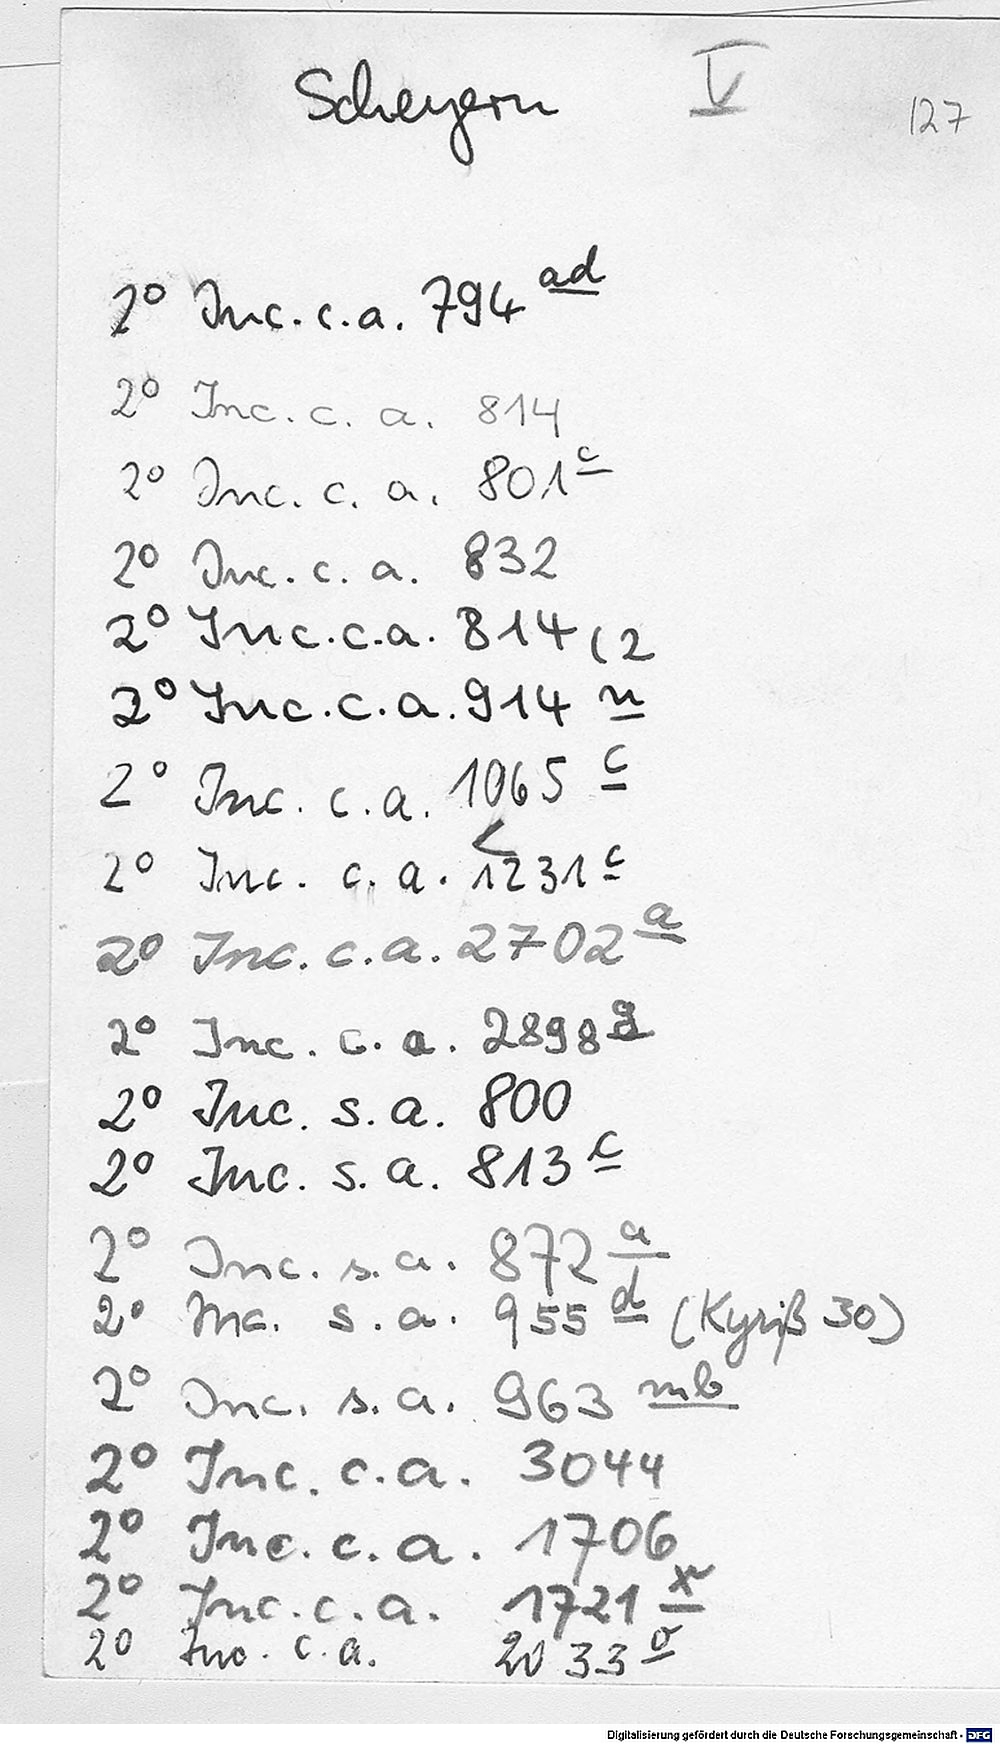 Scheyern V 127
2° Inc. c. a. 794 ad
2° Inc. c. a. 814
2° Inc. c. a. 801 c
2° Inc. c. a. 832
2° Inc. c. a. 814 (2
2° Inc. c. a. 914 n
2° Inc. c. a. 1065 c
2° Inc. c. a. 1231 c
2° Inc. c. a. 2702 a
2° Inc. c. a. 2898 g
2° Inc. s. a. 800
2° Inc. s. a. 813 c
2° Inc. s. a. 872 a
2° Inc. s. a. 955 d (Kyriß 30)
2° Inc. s. a. 963 mb
2° Inc. c. a. 3044
2° Inc. c. a. 1706
2° Inc. c. a. 1721 x
2° Inc. c. a. 2033
Digitalisierung gefördert durch die Deutsche Forschungsgemeinschaft - DFG